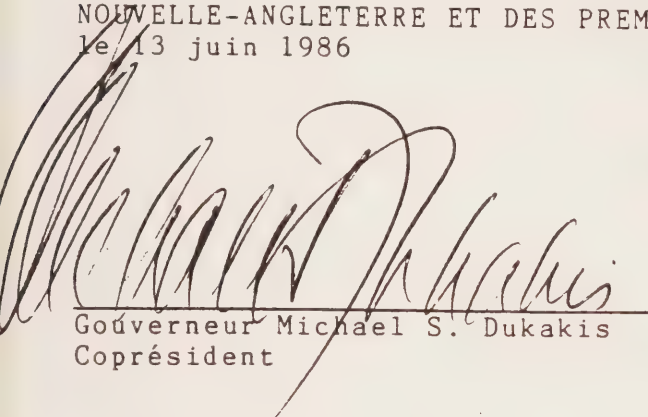 NOUVELLE-ANGLETERRE ET DES PREM
le 13 juin 1986
Michael S. Dukakis
Gouverneur Michael S. Dukakis
Coprésident